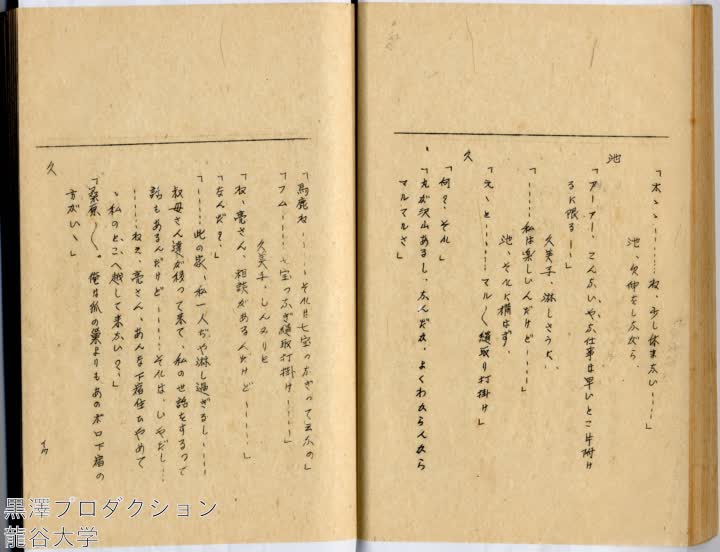 「ホヽヽ……ね、少し休まない……」
池、欠伸をしながら、
池
「アーアー、こんないやな仕事は早いとこ片附け
るに限る……」
久美子、淋しさうな、
「……私は楽しいんだけど……」
池、それに構はず、
「えゝと……マル〱縫取り打掛け」
久
「何？それ」
「丸が沢山あるし、なんだか、よくわからんから
マルマルさ」
「馬鹿ね……それは七宝つなぎって云ふの」
「フム……七宝つなぎ縫取打掛け……」
久美子、しんみりと
「ね、亮さん、相談があるんだけど……」
「なんだ？」
久
「……此の家、私一人ぢや淋し過ぎるし……
叔母さん達が移って来て、私の世話をするって
話もあるんだけど……それは、いやだし……
……ねえ、亮さん、あんな下宿住ひやめて
、私のとこへ越して来ない？」
「桑原〱。俺は狐の巣よりもあのボロ下宿の
方がいゝ」
黒澤プロダクション
龍谷大学